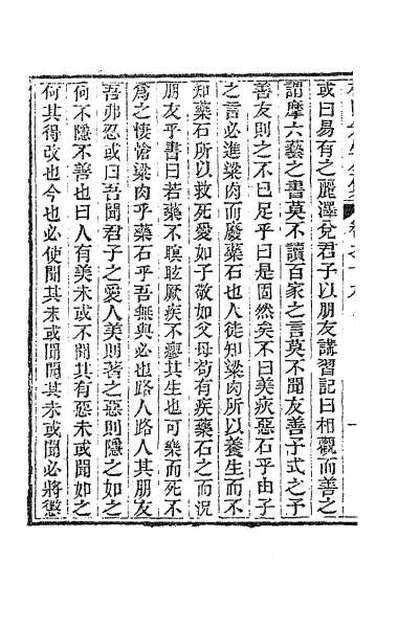 或曰易有之麗澤兌君子以朋友講習記曰相觀而善之
謂摩六藝之書莫不讀百家之言莫不聞友善子式之予
善友則之不曰足乎曰是固然矣不曰美疢惡石乎由子
之言必進粱肉而廢藥石也人徒知粱肉所以養生而不
知藥石所以救死愛如子敬如父母苟有疾藥石之而況
朋友乎書曰若藥不瞑眩厥疾不瘳其生也可樂而死不
爲之悽愴粱肉乎藥石乎吾無與必也路人路人其朋友
吾弗忍或曰吾聞君子之愛人美則著之惡則隱之如之
何不隱不善也曰人有美未或不聞其有惡未或聞如之
何其得改也今也必使聞其未或聞聞其未或聞必將懲